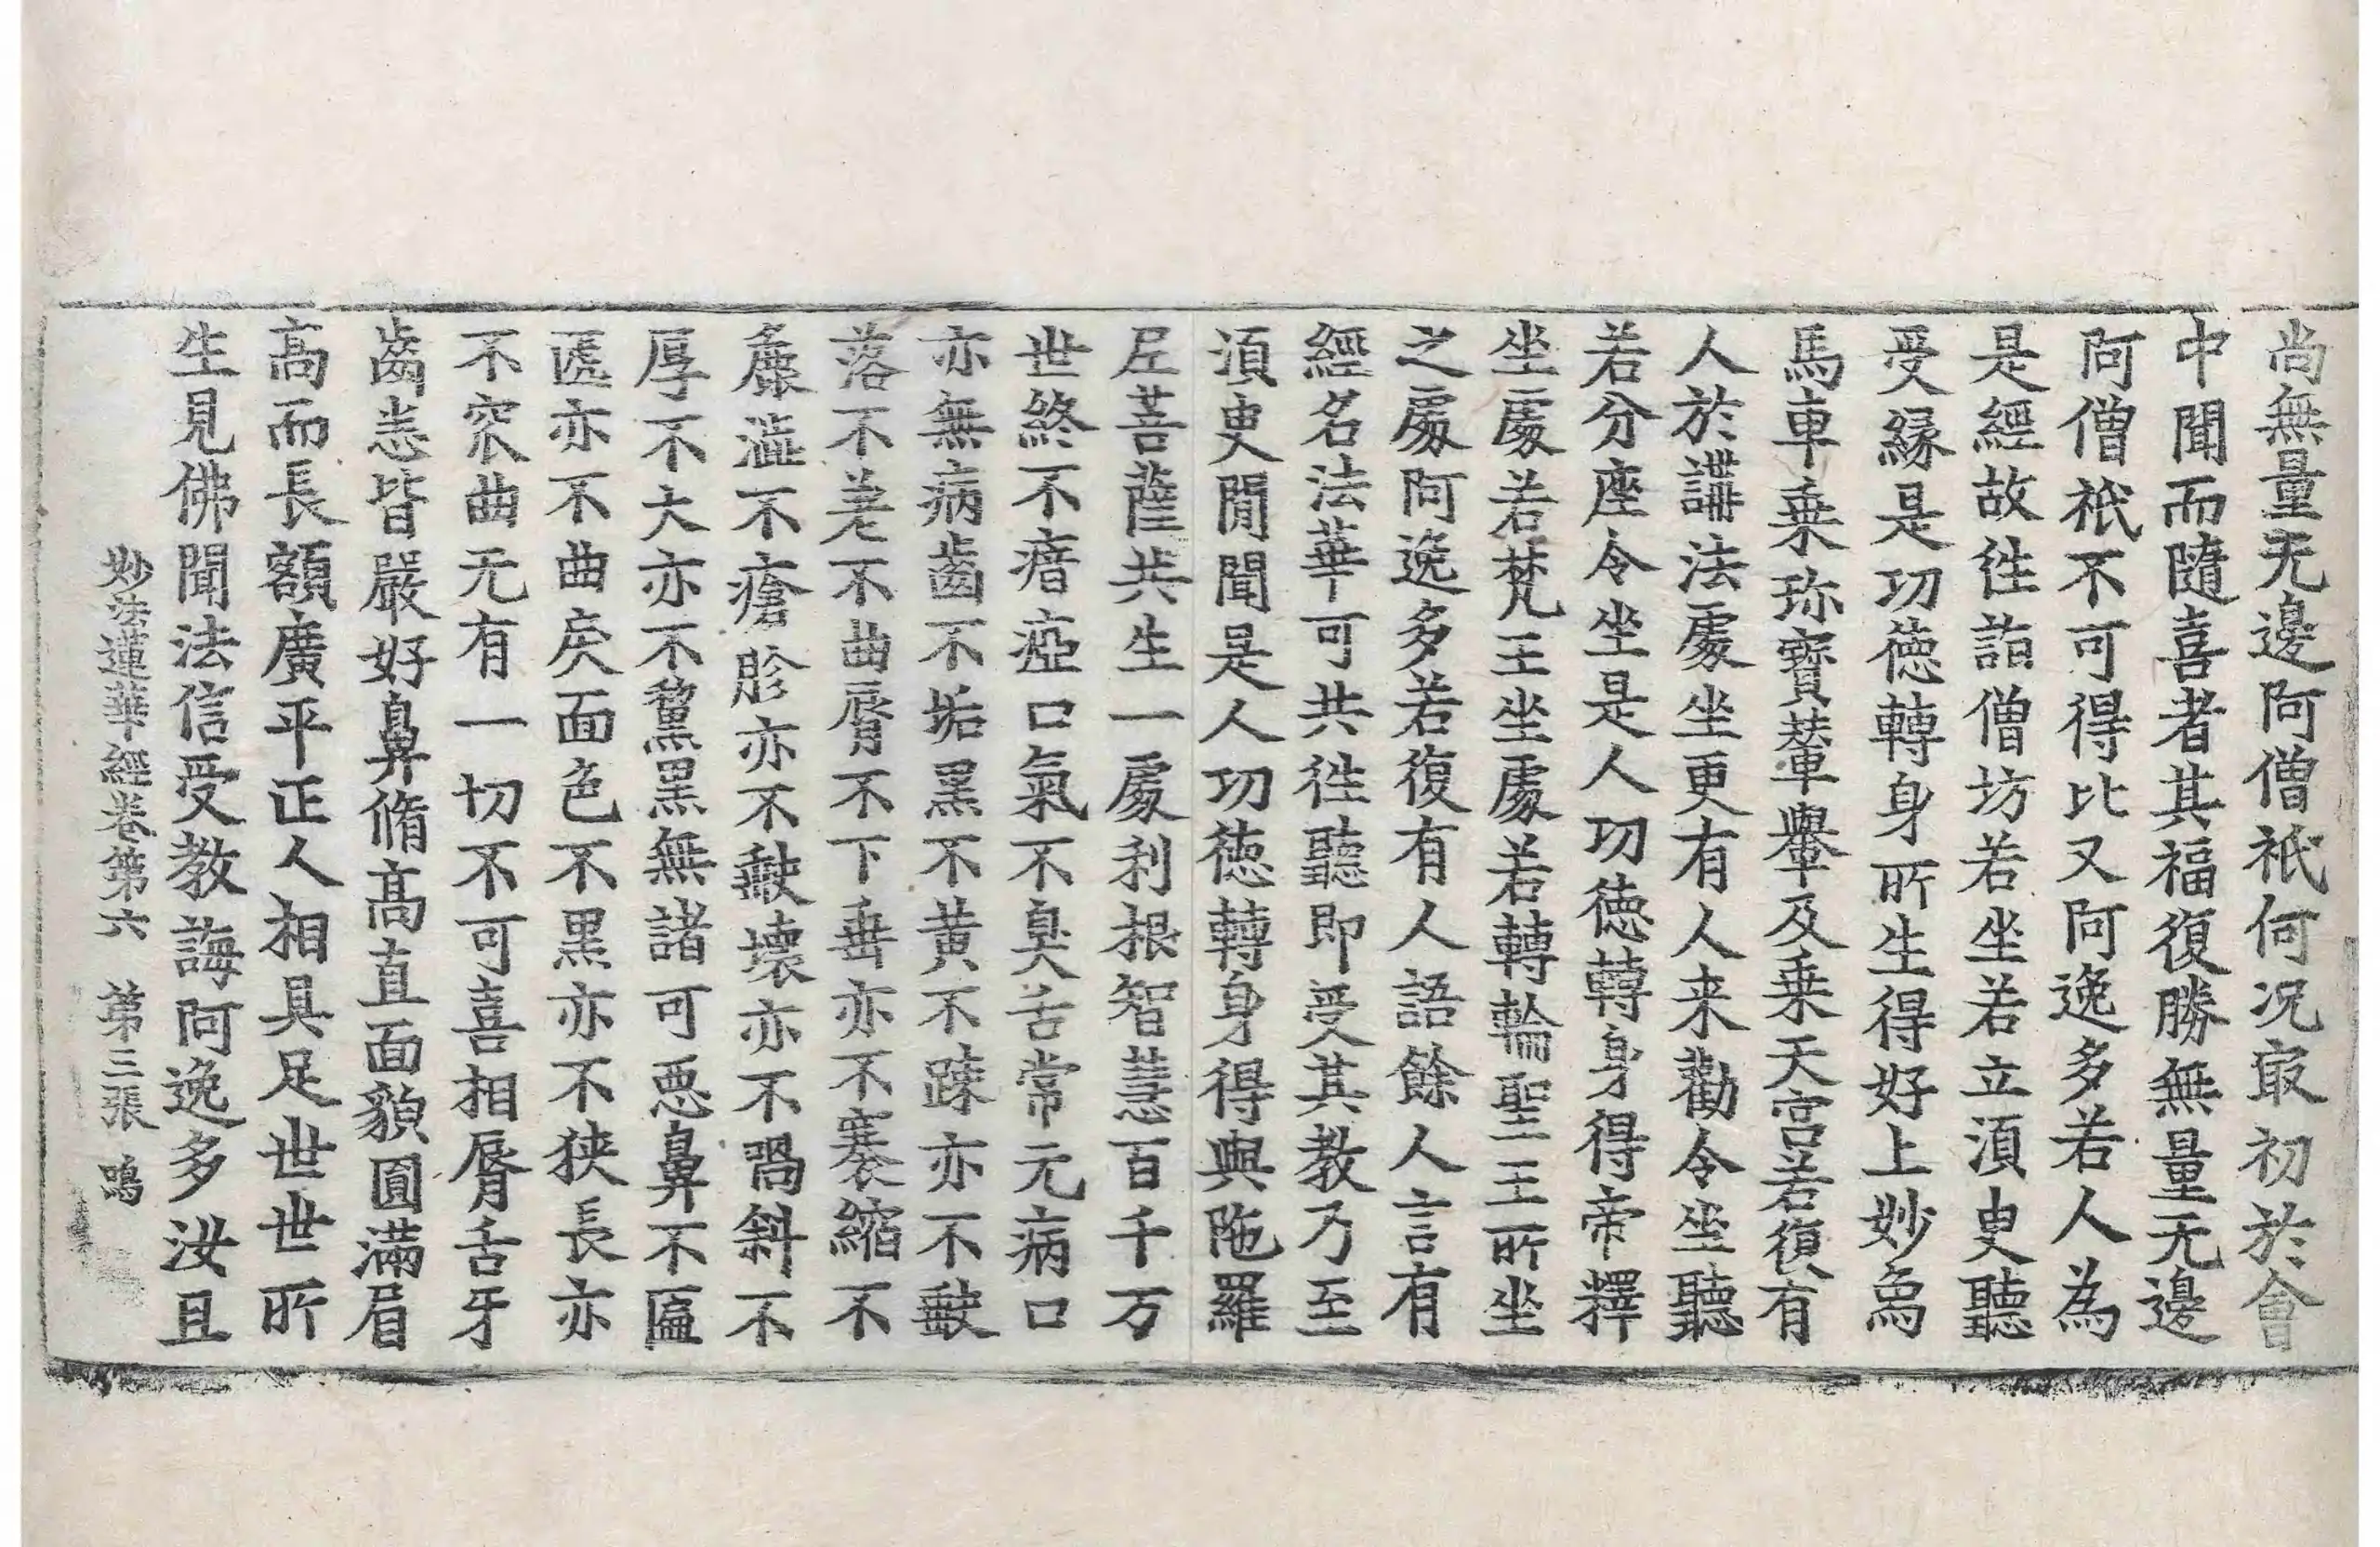 尚無量无邊阿僧祇何况㝡初於會
中聞而隨喜者其福復勝無量无邊
阿僧祇不可得比又阿逸多若人為
是經故徃詣僧坊若坐若立湏㬰聽
受緣是功德轉身所生得好上妙烏
馬車乗珎寶輦轝及乗天宫若復有
人於講法處坐更有人来勸令坐聽
若分座令坐是人功德轉身得帝釋
坐處若梵王坐處若轉輪聖王所坐
之處阿逸多若復有人語餘人言有
經名法華可共徃聽即受其教乃至
湏㬰間聞是人功德轉身得與陁羅
尼菩薩共生一處利根智慧百千万
世終不瘖瘂口氣不臭舌常无病口
亦無病齒不垢黒不黄不踈亦不缺
落不差不曲脣不下垂亦不褰縮不
麁澁不瘡胗亦不缺壞亦不喎斜不
厚不大亦不黧黒無諸可惡鼻不匾
㔸亦不曲戾面色不黒亦不狭長亦
不窊曲无有一切不可喜相脣舌牙
齒悉皆嚴好鼻脩髙直面貌圓滿眉
髙而長額廣平正人相具足世世所
生見佛聞法信受教誨阿逸多汝且
妙法蓮華經卷第六 第三張 鳴